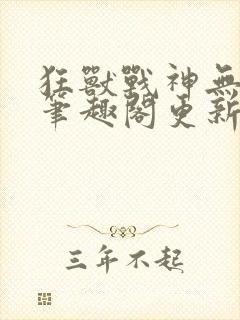 狂獸戰神無
筆趣閣更新
三年不起